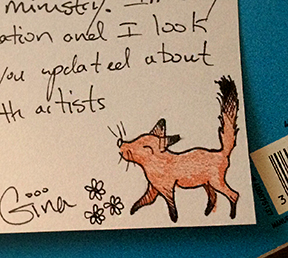 ministry. I
ation and I look
you updated about
th artists
Gina
3